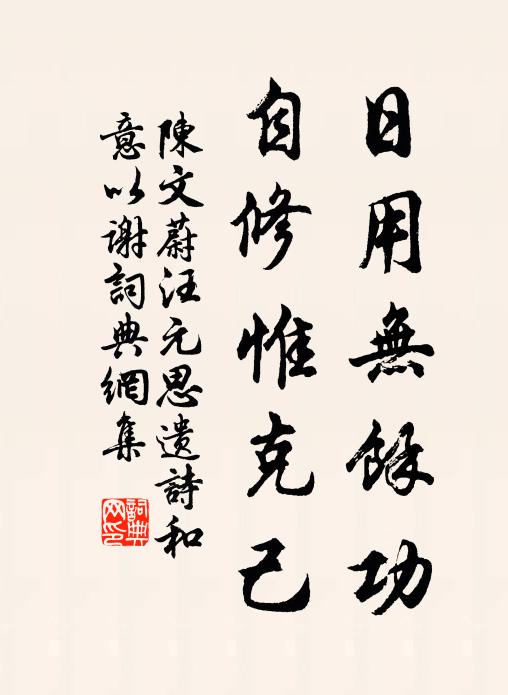 日用無餘功
自修惟克己
陳文蔚汪元思遺詩和
意以謝詞典網集
詞典网印